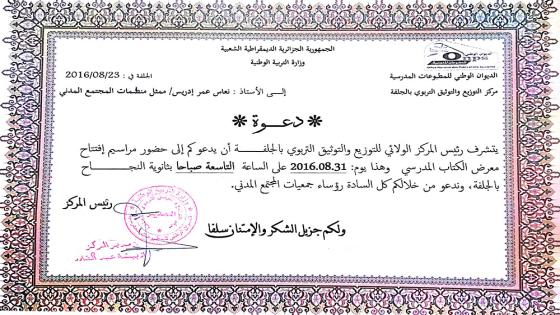 الجمهورية الجزائرية الديمقراطية الشعبية
وزارة التربية الوطنية
الديوان الوطني للمطبوعات المدرسية
الجلفة في : 2016/08/23
مركز التوزيع والتوثيق التربوي بالجلفة
إلى الأستاذ : نعاس عمر إدريس/ ممثل منظمات المجتمع المدني
* دعوة *
يتشرف رئيس المركز الولائي للتوزيع والتوثيق التربوي بالجلفة أن يدعوكم إلى حضور مراسيم إفتتاح
معرض الكتاب المدرسي وهذا يوم: 2016.08.31 على الساعة التاسعة صباحا بثانوية النجاح
بالجلفة، وندعو من خلالكم كل السادة رؤساء جمعيات المجتمع المدني.
رئيس المركز
ولكم جزيل الشكر والإمتنان سلفا
مدير المركز